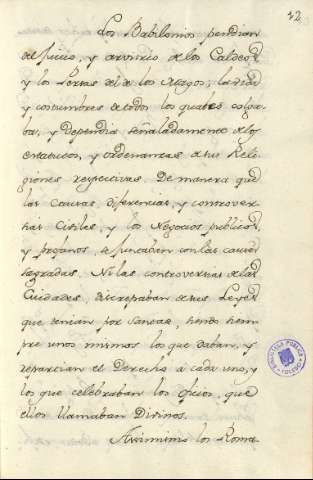 12
Los Babilonios pendian
del juicio, y arvitrio de los Caldeos
y los Persas del de los Magos; la vida
y costumbres de todos los quales colga-
ba, y dependia señaladamente de los
estatutos, y ordenanzas de sus Reli-
giones respectivas. De manera que
las Causas, diferencias, y controver-
sias Civiles, y los Negocios publicos
y profanos, se juzcaban con las causas
sagradas. Ni las controversias de las
Ciudades, discrepaban de sus Leyes
que tenian por Santas, siendo siem-
pre unos mismos los que daban, y
repartian el Derecho á cada uno, y
los que celebraban los oficios, que
ellos llamaban Divinos.
Assimismo los Roma-
BIBLIOTECA PUBLICA
TOLEDO